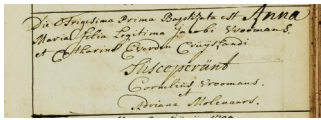 Die Trigesima Prima Baptizata est Anna
Maria filia Legitima Jacobi Vroomans,
et Catharinæ Everden Cruÿslandi
Susceperúnt
Cornelius Vroomans.
et
Adriana Molenaars.